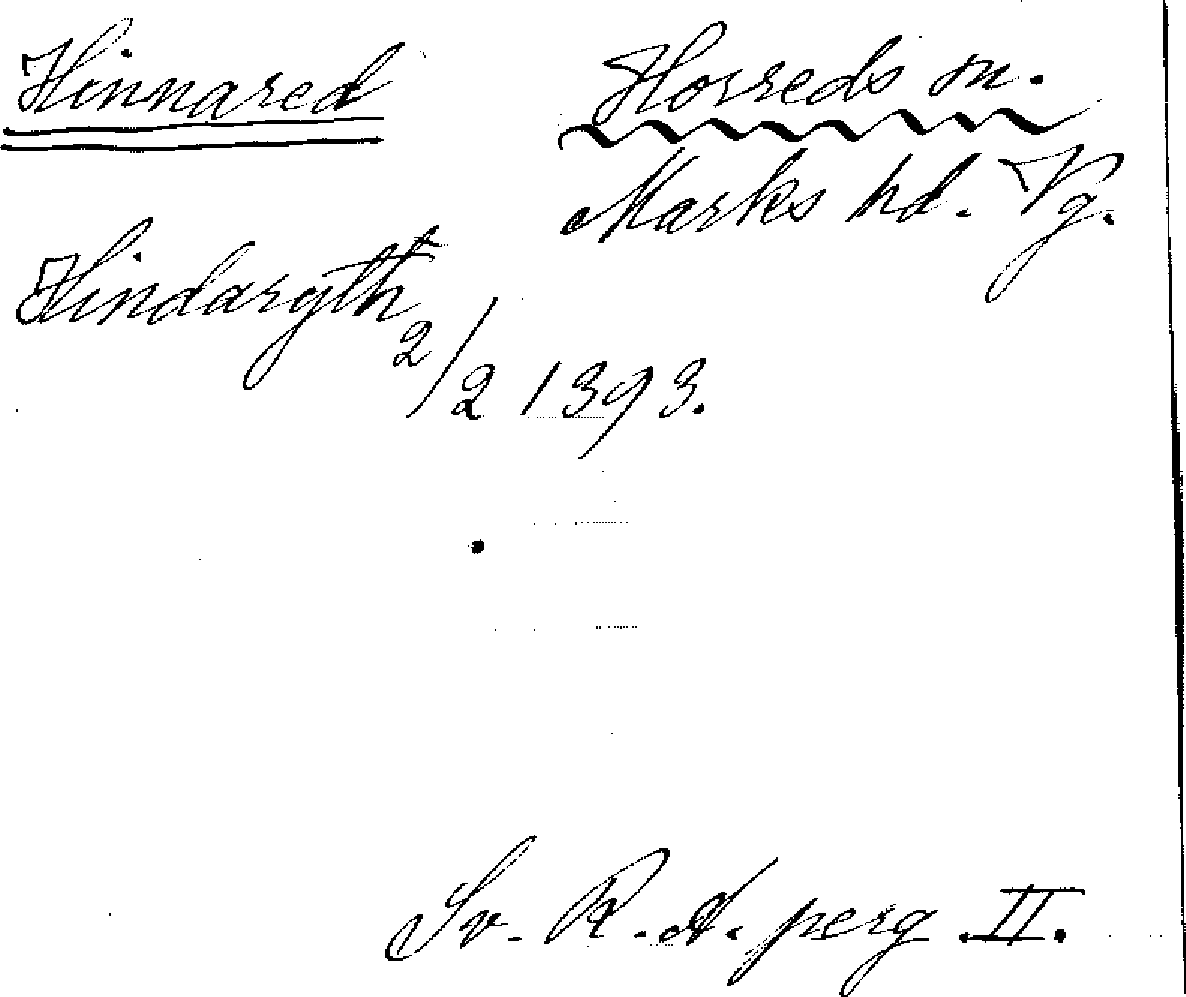 Hinnared
Horreds sn.
Marks hd. Vg.
Hindaryth
2/2 1393.
Sv. R.A. perg II.